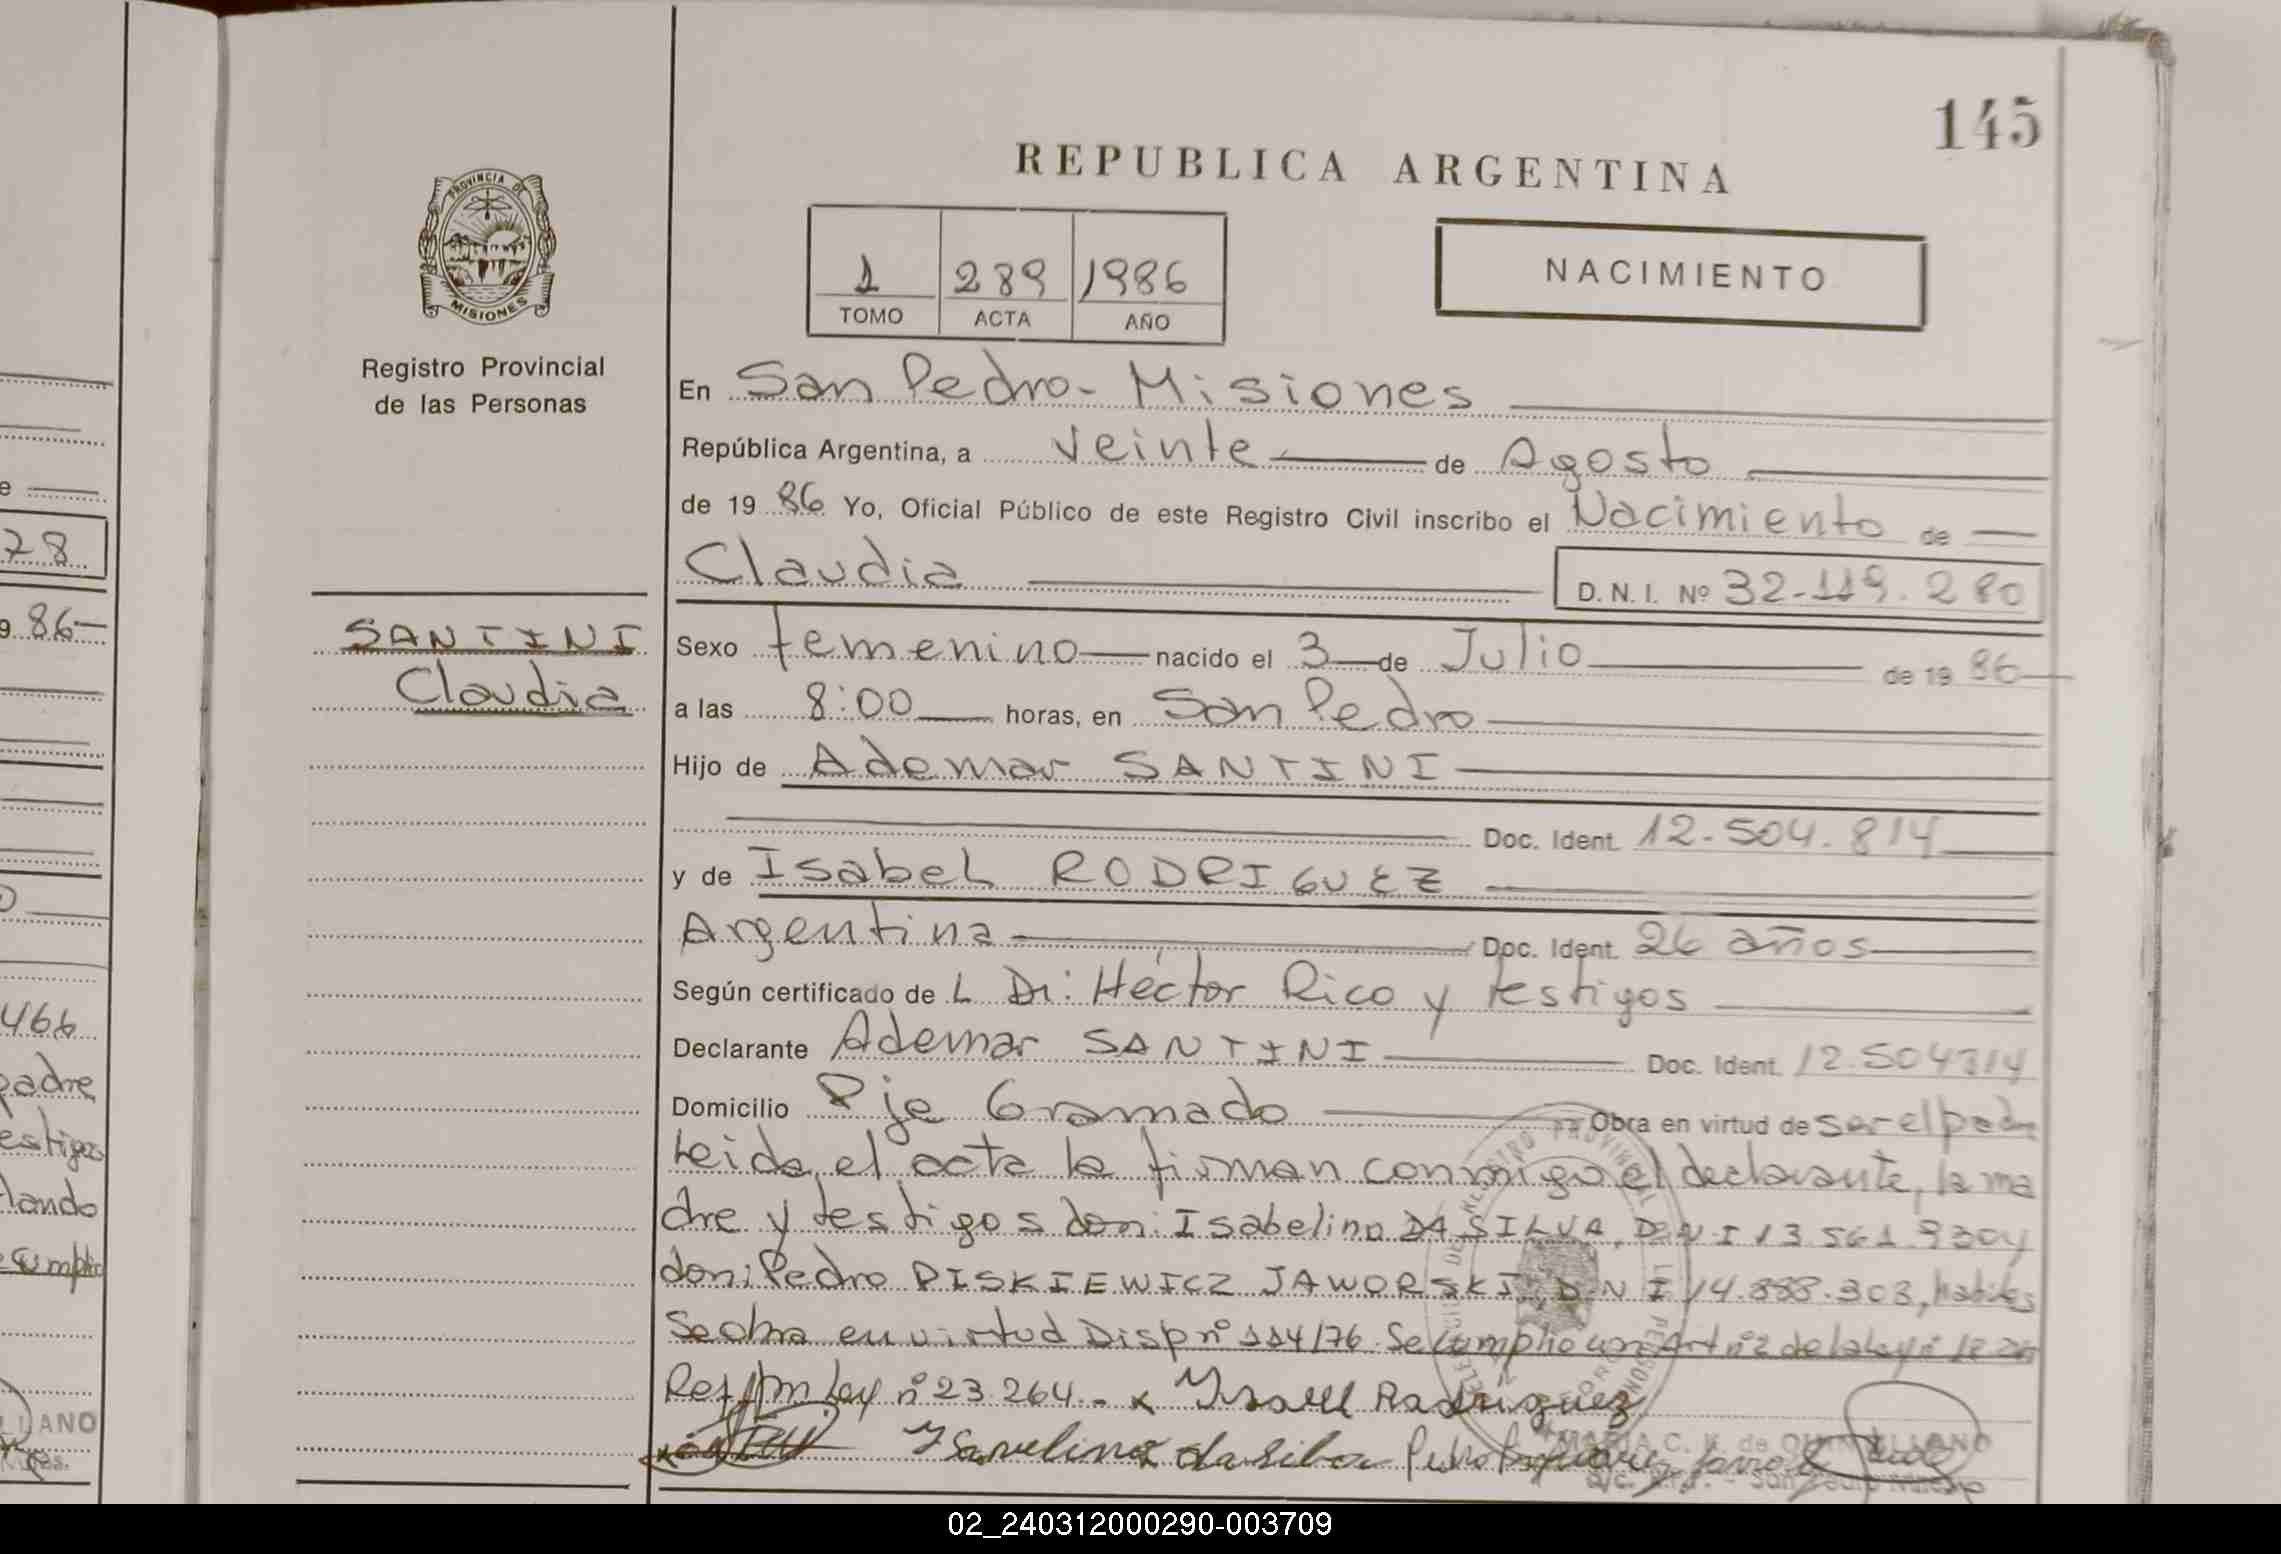 145
REPUBLICA ARGENTINA
PROVINCIA DE
MISIONES
1 289 1986
TOMO ACTA AÑO
NACIMIENTO
Registro Provincial
de las Personas
SANTINI
Claudia
En San Pedro - Misiones
República Argentina, a veinte de Agosto
de 19 86 Yo, Oficial Público de este Registro Civil inscribo el Nacimiento de
Claudia D. N. I. Nº 32-119.280
Sexo femenino nacido el 3 de Julio de 19 86
a las 8:00 horas, en San Pedro
Hijo de Ademar SANTINI
Doc. Ident. 12-504.814
y de Isabel RODRIGUEZ
Argentina Doc. Ident. 26 años
Según certificado de L Dr: Héctor Rico y testigos
Declarante Ademar SANTINI Doc. Ident. 12.504314
Domicilio Pje Gramado Obra en virtud de ser el padre
Leida el acta la firman conmigo el declarante, la ma
dre y testigos don: Isabelino DA SILVA, DNI 13.561.930 y
don: Pedro PISKIEWICZ JAWORSKI, DNI 14.888.303, habiles
Se obra en virtud Disp nº 114/76. Se cumplio con Art nº 2 de la ley nº
Ref Ley nº 23.264.- x Isabel Rodriguez
Isavelino da silva Pedro
MARIA C. K. de QUINTELLANO
78
9 86
466
padre
estigos
lando
cumplio
LLANO
02_240312000290-003709